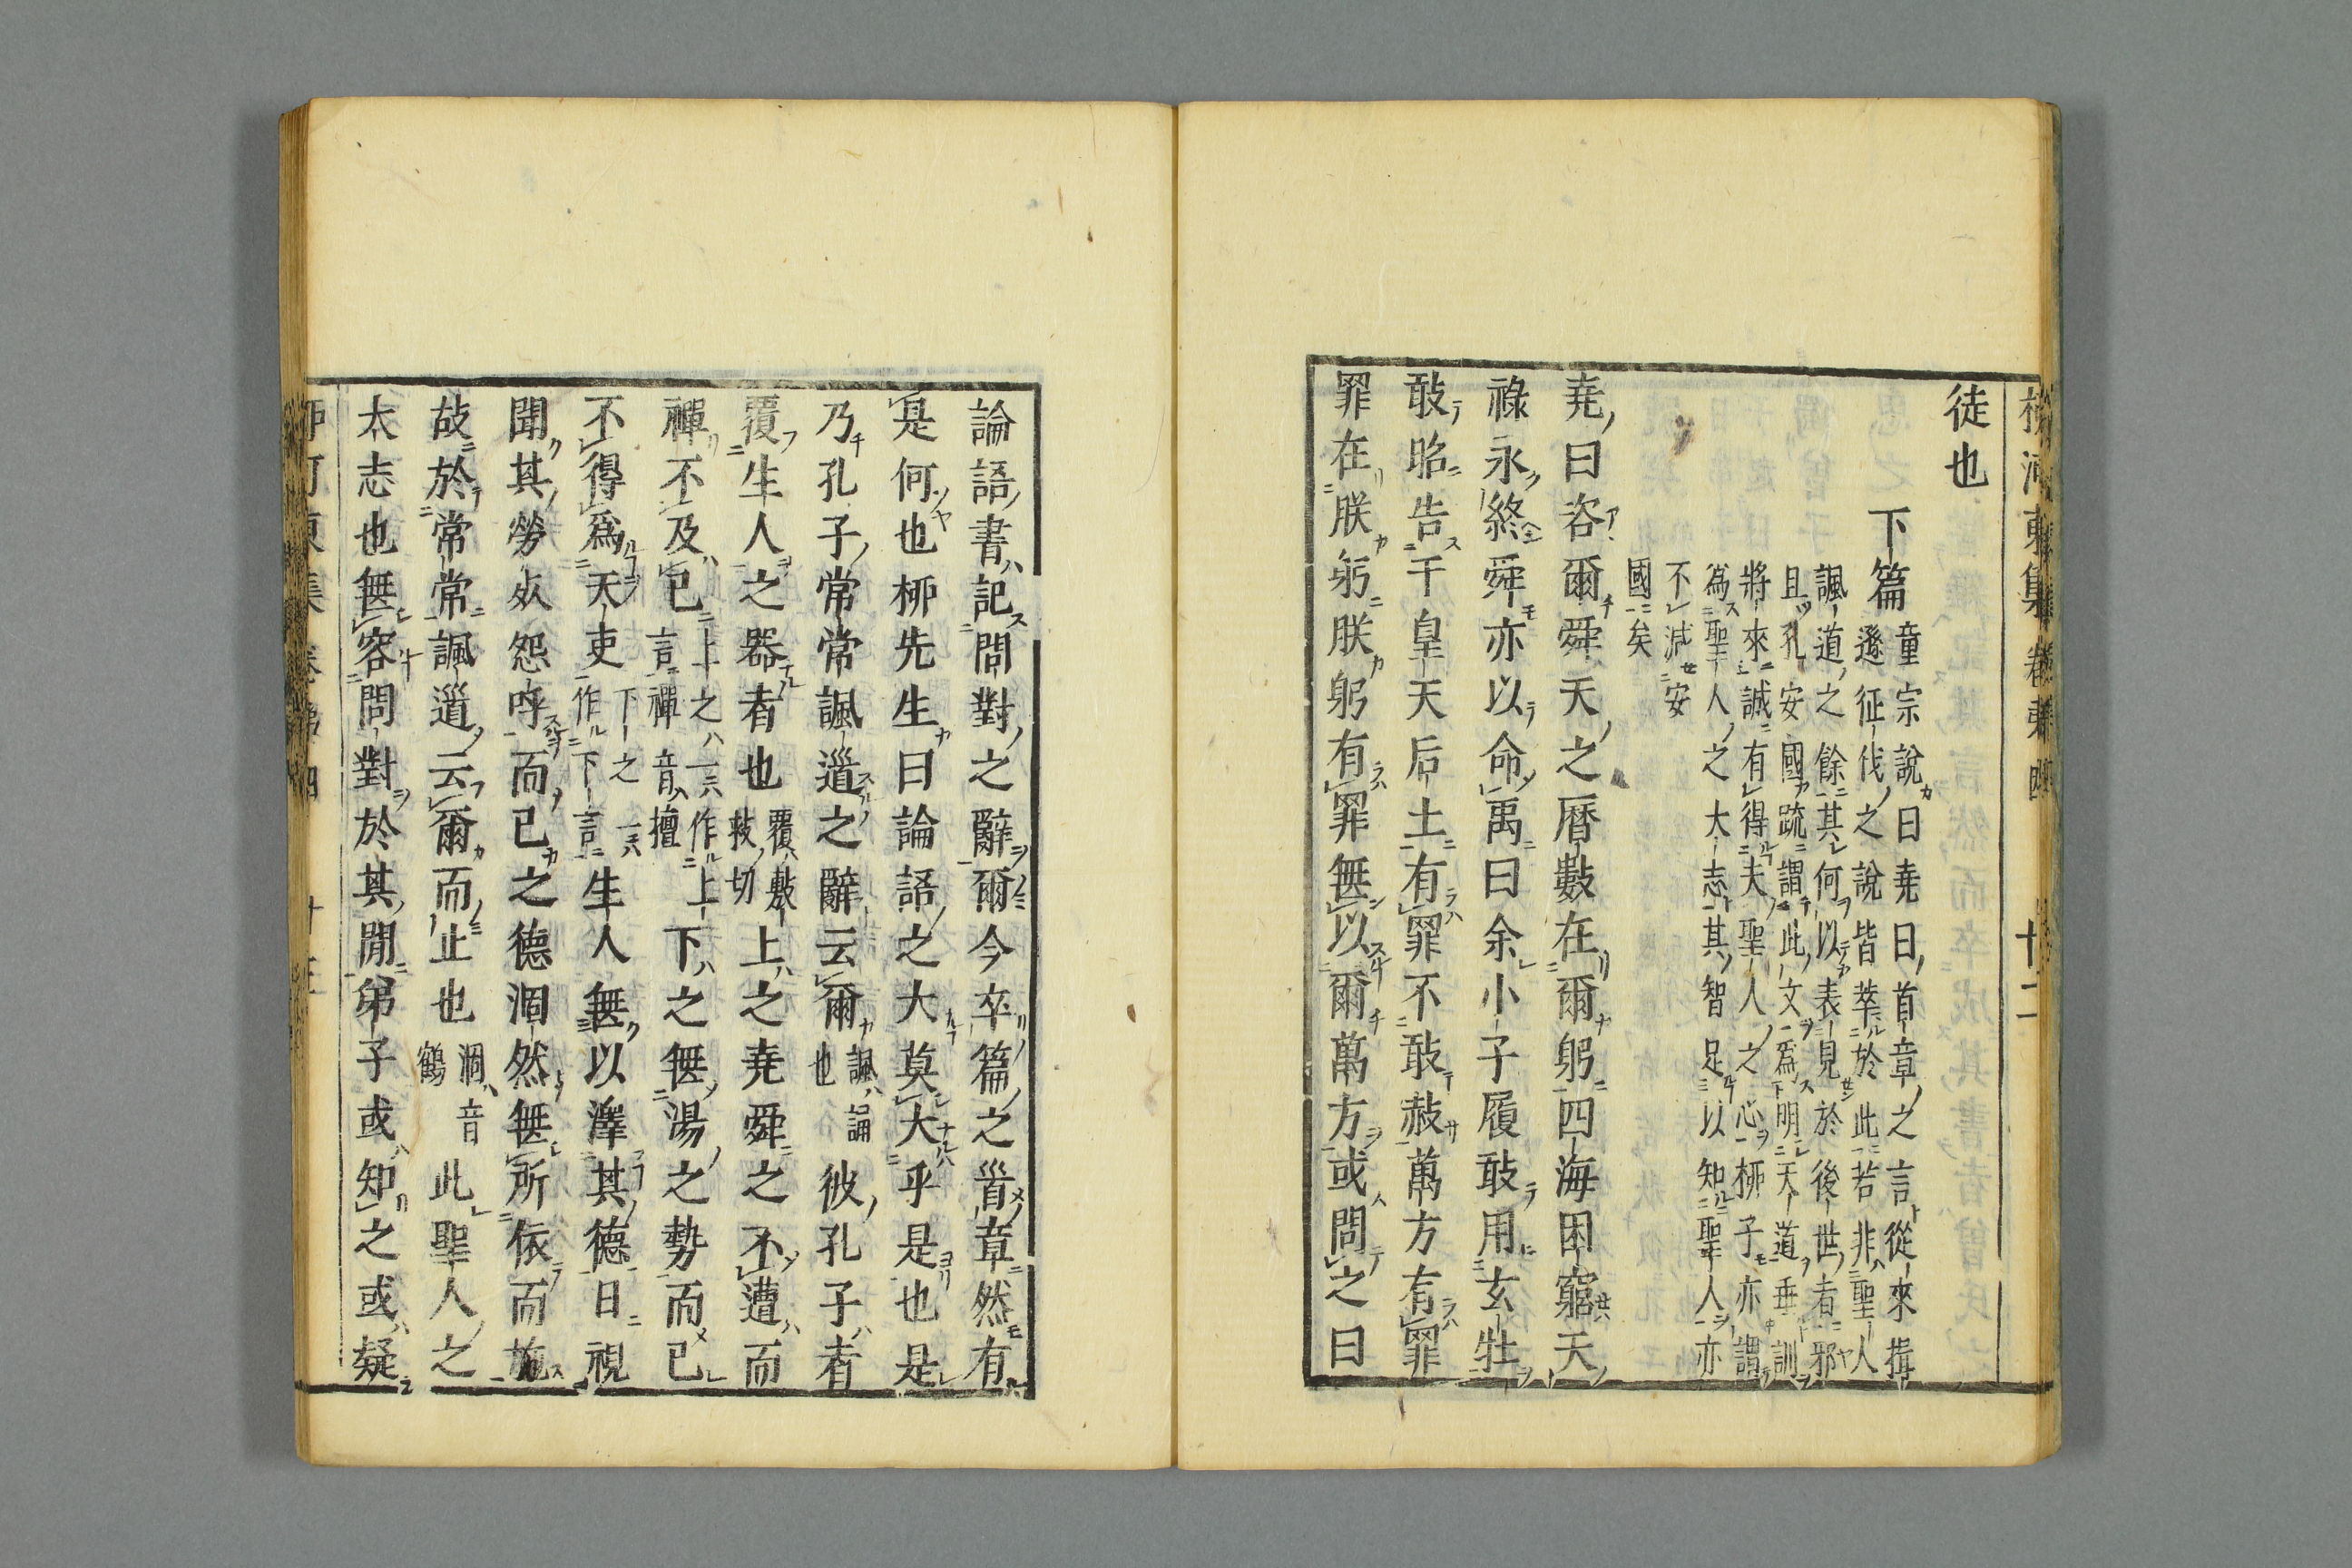 柳河東集卷第四 十二
徒也
下篇
童宗說曰堯曰首章之言從來揖
遜征伐之說皆萃於此若非聖人
諷道之餘其何以表見於後世者邪
且孔安國疏謂此文爲明天道垂訓
將來誠有得夫聖人之心柳子亦謂
爲聖人之大志其智足以知聖人亦
不減安
國矣
堯曰咨爾舜天之曆數在爾躬四海困窮天
祿永終舜亦以命禹曰余小子履敢用玄牡
敢昭告于皇天后土有罪不敢赦萬方有罪
罪在朕躬朕躬有罪無以爾萬方或問之曰
論語書記問對之辭爾今卒篇之首章然有
是何也柳先生曰論語之大莫大乎是也是
乃孔子常常諷道之辭云爾諷誦也彼孔子者
覆生人之器者也覆敷救切上之堯舜之不遭而
禪不及已上之一云作上言禪音擅下之無湯之勢而已
不得爲天吏下之一云作下言生人無以澤其德日視
聞其勞死怨呼而已之德涸然無所依而施
故於常常諷道云爾而止也涸音鶴此聖人之
大志也無容問對於其間弟子或知之或疑
柳河東集卷第四